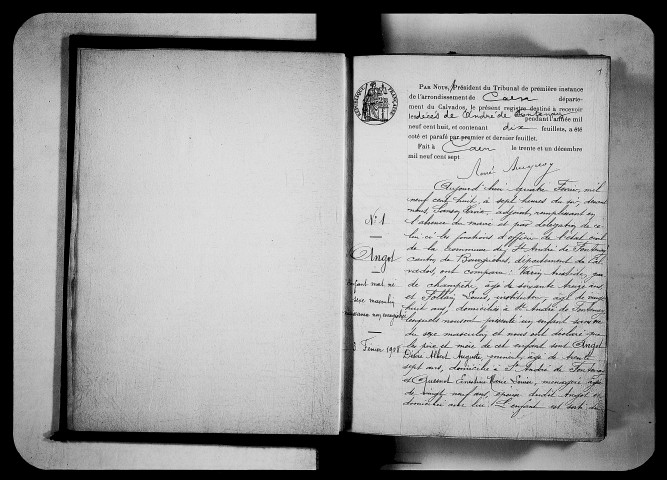 1
PAR NOUS, Président du Tribunal de première instance
de l'arrondissement de Caen départe-
ment du Calvados, le présent registre destiné à recevoir
les décès de André de Fontenay pendant l'année mil
neuf cent huit, et contenant dix feuillets, a été
coté et parafé par premier et dernier feuillet.
Fait à Caen le trente et un décembre
mil neuf cent sept
RÉPUBLIQUE FRANÇAISE
N° 1
Angot
enfant mort né
sexe masculin
3 Février 1908
Aujourd'hui quatre Février, mil
neuf cent huit, à sept heures du soir, devant
nous adjoint, remplissant en
l'absence du maire et par délégation de ce
lui ci les fonctions d'officier de l'état civil
de la commune de St André de Fontenay
canton de Bourguébus, département du Cal
vados, ont comparu : Varin Aristide, garde
champêtre, âgé de soixante treize ans
et Louis, instituteur, âgé de vingt
huit ans, domiciliés à St André de Fontenay
lesquels nous ont présenté un enfant sans vie
du sexe masculin et nous ont déclaré que
les père et mère de cet enfant sont Angot
Désiré Albert Auguste, âgé de trente
sept ans, domicilié à St André de Fontenay
et Quesnot Ernestine Marie Louise, ménagère âgée
de vingt neuf ans, épouse dudit Angot et
domiciliée avec lui. L'enfant est sorti du